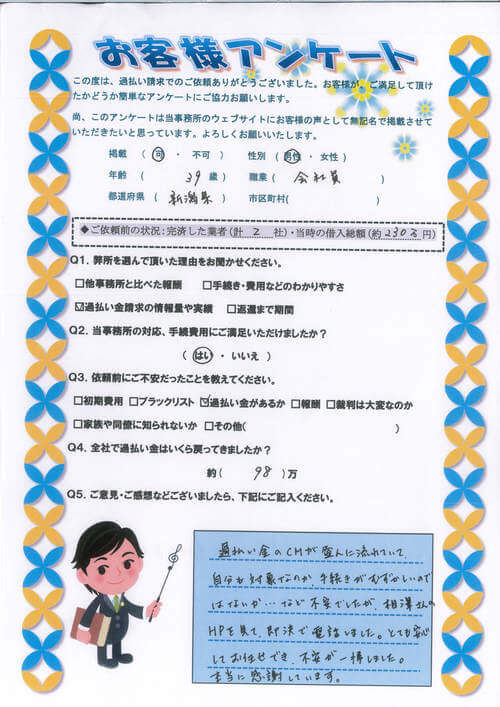 お客様アンケート
この度は、過払い請求でのご依頼ありがとうございました。お客様が、ご満足して頂け
たかどうか簡単なアンケートにご協力お願いします。
尚、このアンケートは当事務所のウェブサイトにお客様の声として無記名で掲載させて
いただきたいと思っています。よろしくお願いいたします。
掲載 ( 可 ・ 不可 ) 性別 ( 男性 ・ 女性 )
年齢 ( 39 歳 ) 職業 ( 会社員 )
都道府県 ( 新潟県 ) 市区町村( )
◆ご依頼前の状況:完済した業者(計 2 社)・当時の借入総額(約230万円)
Q1. 弊所を選んで頂いた理由をお聞かせください。
□他事務所と比べた報酬 □手続き・費用などのわかりやすさ
☑過払い金請求の情報量や実績 □返還まで期間
Q2. 当事務所の対応、手続費用にご満足いただけましたか?
( はい ・ いいえ )
Q3. 依頼前にご不安だったことを教えてください。
□初期費用 □ブラックリスト ☑過払い金があるか □報酬 □裁判は大変なのか
□家族や同僚に知られないか □その他( )
Q4. 全社で過払い金はいくら戻ってきましたか?
約( 98 )万
Q5. ご意見・ご感想などございましたら、下記にご記入ください。
過払い金のCMが盛んに流れていて
自分も対象なのか 手続きがむずかしいので
はないか…など不安でしたが、相澤さんの
HPを見て、即決で電話しました。とても安心
してお任せでき、不安が一掃しました。
本当に感謝しています。